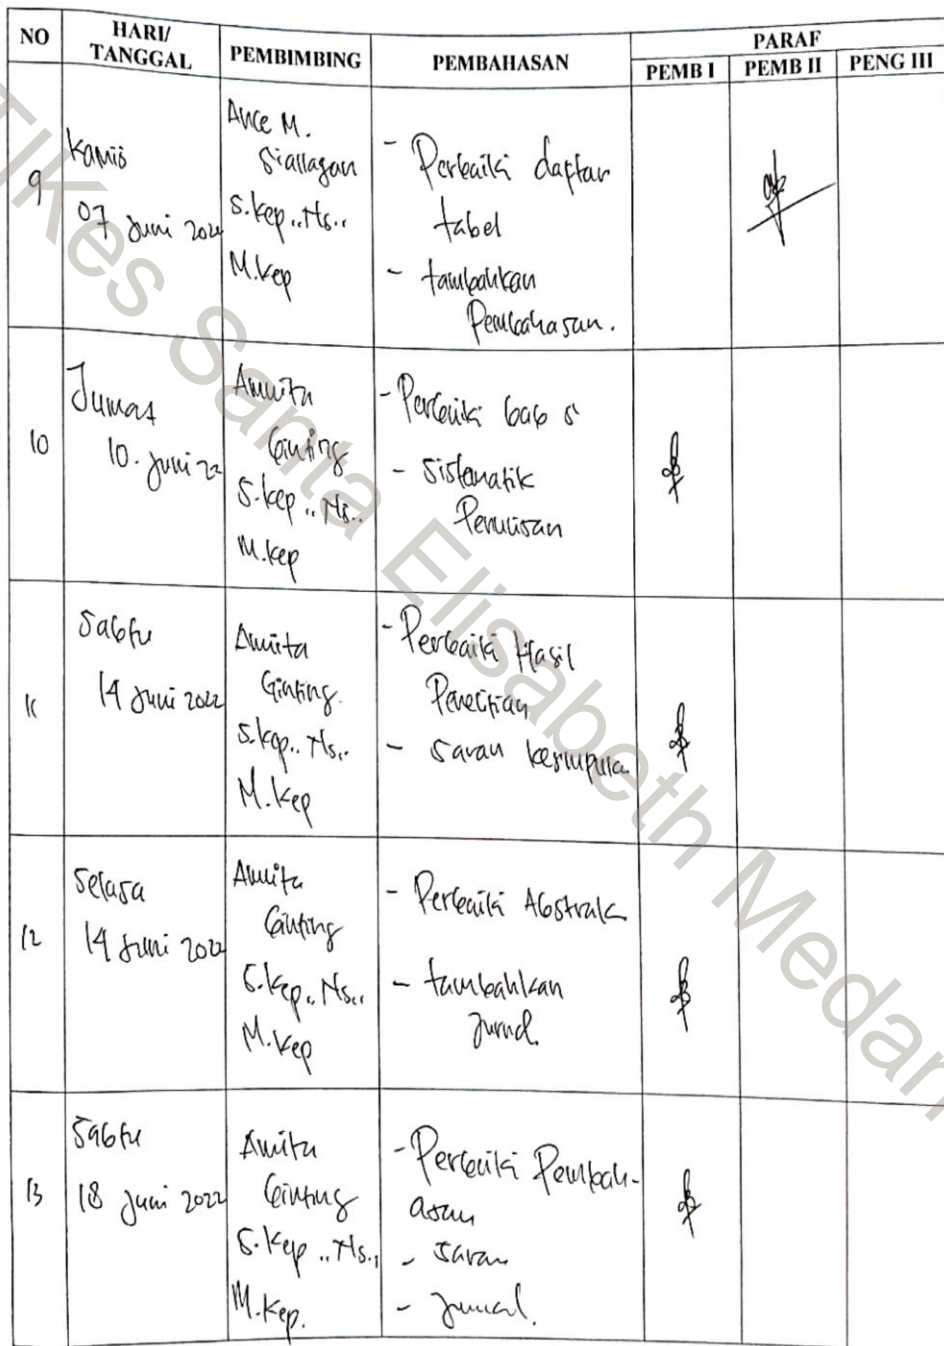 NO HARI/ TANGGAL PEMBIMBING PEMBAHASAN PARAF
PEMB I PEMB II PENG III
9
Kamis
07 Juni 2022
Ance M.
Siallagan
S.kep..Ns..
M.kep
- Perbaiki daftar
tabel
- tambahkan
Pembahasan.
10
Jumat
10. Juni 22
Amita
Ginting
S.kep..Ns..
M.kep
- Perbaiki bab 5
- Sistematik
Penulisan
11
Sabtu
14 Juni 2022
Amita
Ginting.
S.kep..Ns..
M.kep
- Perbaiki Hasil
Penelitian
- Saran kesimpula
12
Selasa
14 Juni 2022
Amita
Ginting
S.kep..Ns..
M.kep
- Perbaiki Abstrak
- tambahkan
Jurnal.
13
Sabtu
18 Juni 2022
Amita
Ginting
S.kep..Ns.,
M.kep.
- Perbaiki Pembah-
asan
- Saran
- Jurnal.
TIKes Santa Elisabeth Medan